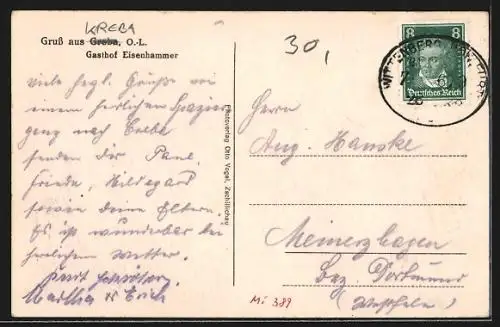 KREBA
Gruß aus Greba, O.-L.
Gasthof Eisenhammer
30,
8 8
Deutsches Reich
WITTENBERG
viele herzl. Grüße von
einem herrlichen Spazier
gang nach Creba
senden Dir Paul,
Frieda, Hildegard
sowie deine Eltern.
Es ist wunderbar bei
herrlichem Wetter.
Martha u Erich
Photoverlag Otto Vogel, Zschillichau
Herrn
Aug. Hanske
Meinerzhagen
Bez. Dortmund
(Westfalen)
Mi 389